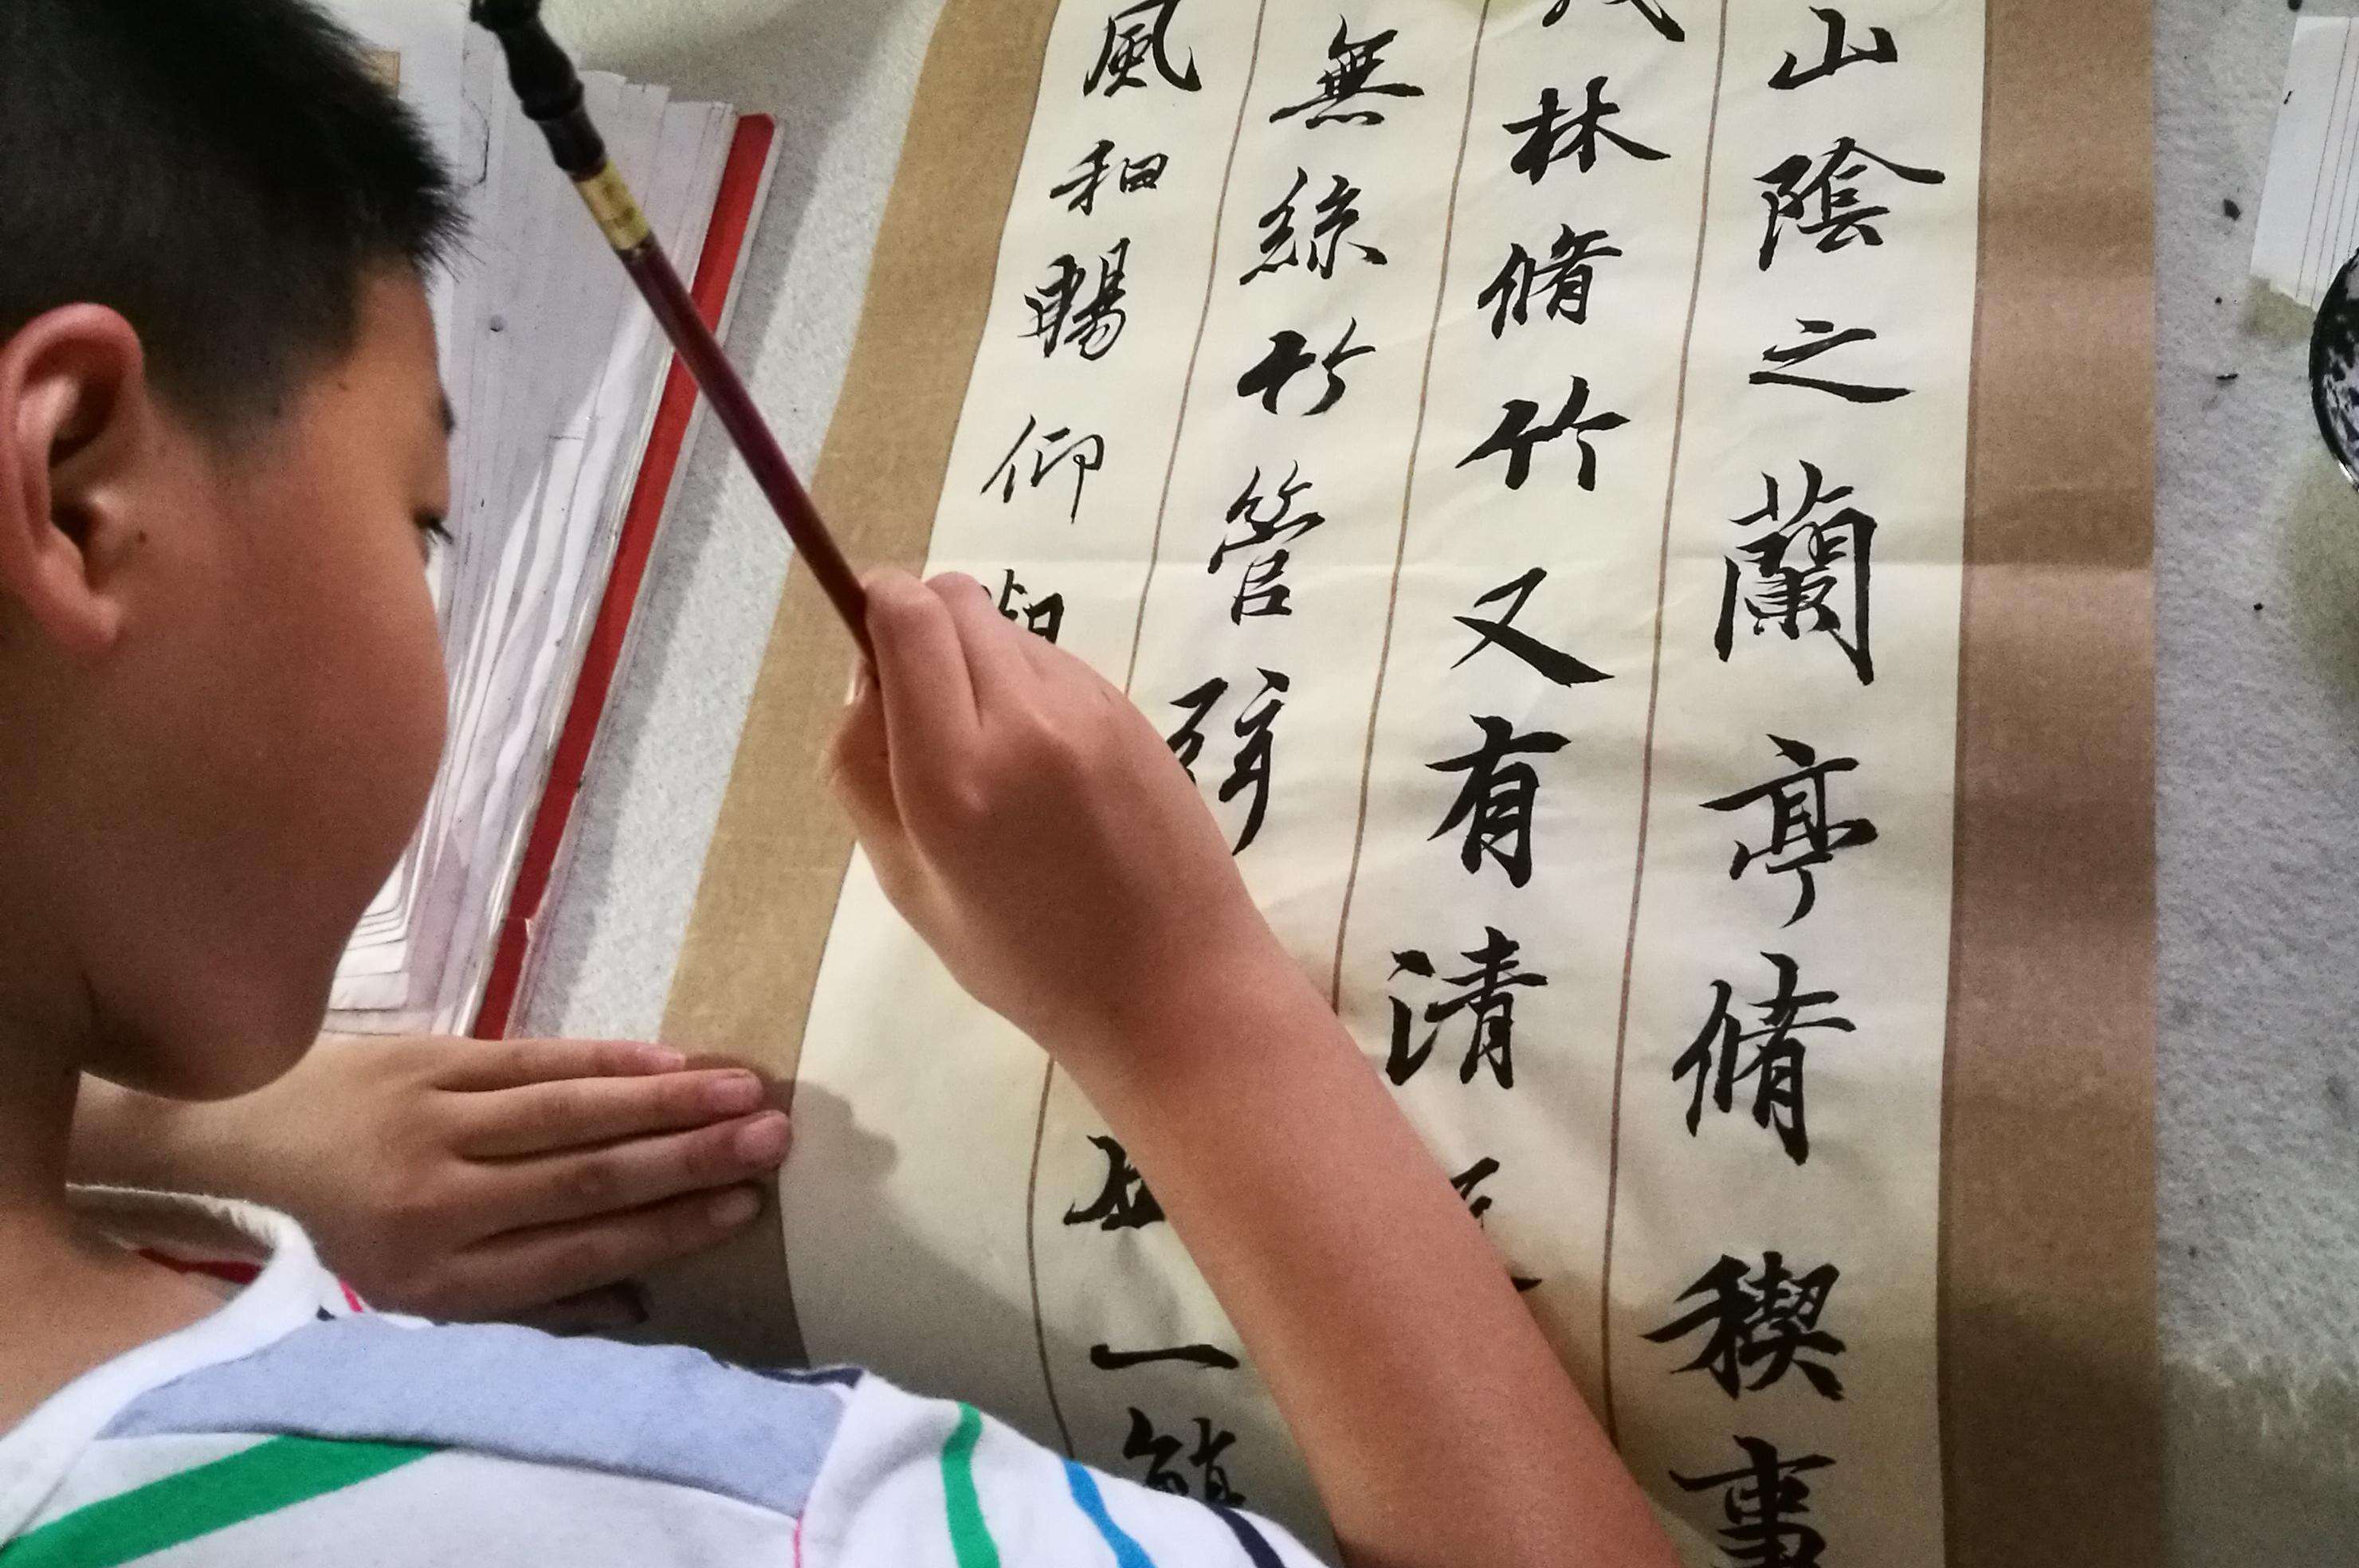 山陰之蘭亭脩稧事
林脩竹又有清
無絲竹管弦一
風和暢仰